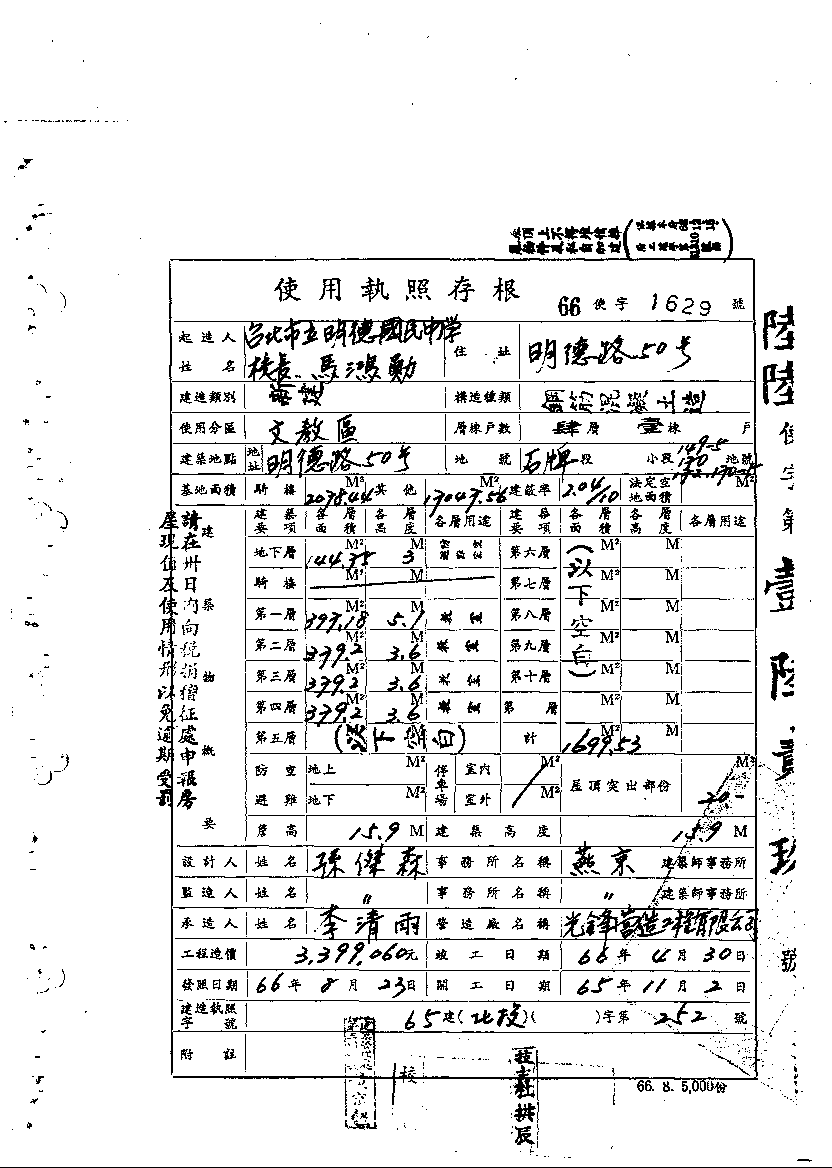 屋頂上不得堆積雜
使用執照存根
66 使字 1629 號
起造人姓名 台北市立明德國民中學 校長 馬鴻勳 住址 明德路50号
建造類別 新建 構造種類 鋼筋混凝土造
使用分區 文教區 層棟戶數 肆層 壹棟 戶
建築地點 地址 明德路50号 地號 石牌段 小段 地號
基地面積 騎樓 M² 2078.44 其他 17047.56 建蔽率 2.04/10 法定空地面積 M²
建築要項 各層面積 各層高度 各層用途 建築要項 各層面積 各層高度 各層用途
地下層 144.75 M² 3 M 第六層 (以下空白) M² M
騎樓 M² M 第七層 M² M
第一層 397.18 M² 5.1 M 教室 第八層 M² M
第二層 339.2 M² 3.6 M 教室 第九層 M² M
第三層 339.2 M² 3.6 M 教室 第十層 M² M
第四層 339.2 M² 3.6 M 教室 第 層 M² M
第五層 (以下空白) 計 1699.53 M² M
防空避難 地上 M² 停車場 室內 M² 屋頂突出部份 20- M²
地下 M² 室外 M²
簷高 15.9 M 建築高度 15.9 M
設計人 姓名 孫傑森 事務所名稱 燕京 建築師事務所
監造人 姓名 〃 事務所名稱 〃 建築師事務所
承造人 姓名 李清雨 營造廠名稱 光鋒營造工程有限公司
工程造價 3,399,060元 竣工日期 66年4月30日
發照日期 66年8月23日 開工日期 65年11月2日
建造執照字號 65建(北投)( )字第 252 號
附註
建築物概要
請在卅日內向稅捐稽征處申報房
屋現值及使用情形以免逾期受罰
陸陸使字第壹陸貳玖號
校
66. 8. 5,000份